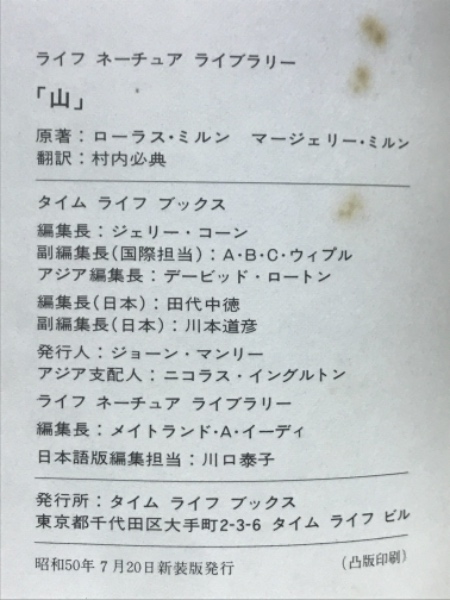 ライフ ネーチュア ライブラリー
「山」
原著：ローラス・ミルン　マージェリー・ミルン
翻訳：村内必典
タイム ライフ ブックス
編集長：ジェリー・コーン
副編集長(国際担当)：A・B・C・ウィプル
アジア編集長：デービッド・ロートン
編集長(日本)：田代中徳
副編集長(日本)：川本道彦
発行人：ジョーン・マンリー
アジア支配人：ニコラス・イングルトン
ライフ ネーチュア ライブラリー
編集長：メイトランド・A・イーディ
日本語版編集担当：川口泰子
発行所：タイム ライフ ブックス
東京都千代田区大手町2-3-6 タイム ライフ ビル
昭和50年7月20日新装版発行　(凸版印刷)